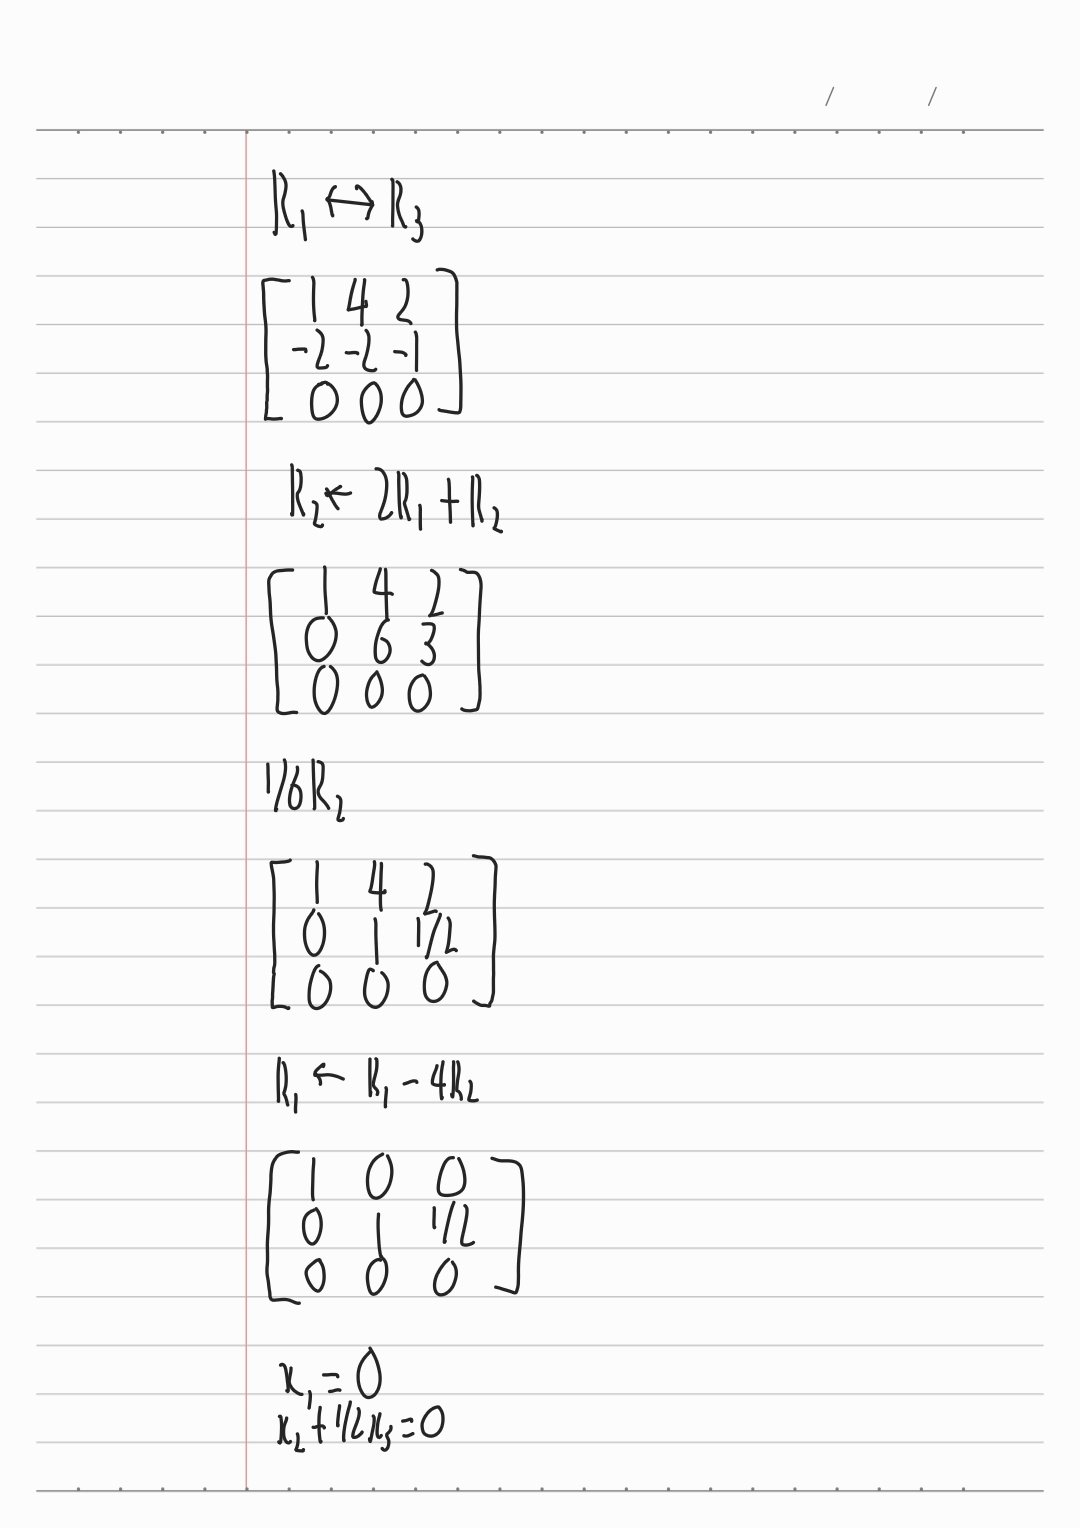 / /
R₁ ↔ R₃
[ 1 4 2
-2 -2 -1
0 0 0 ]
R₂ ← 2R₁ + R₂
[ 1 4 2
0 6 3
0 0 0 ]
1/6 R₂
[ 1 4 2
0 1 1/2
0 0 0 ]
R₁ ← R₁ - 4R₂
[ 1 0 0
0 1 1/2
0 0 0 ]
x₁ = 0
x₂ + 1/2 x₃ = 0